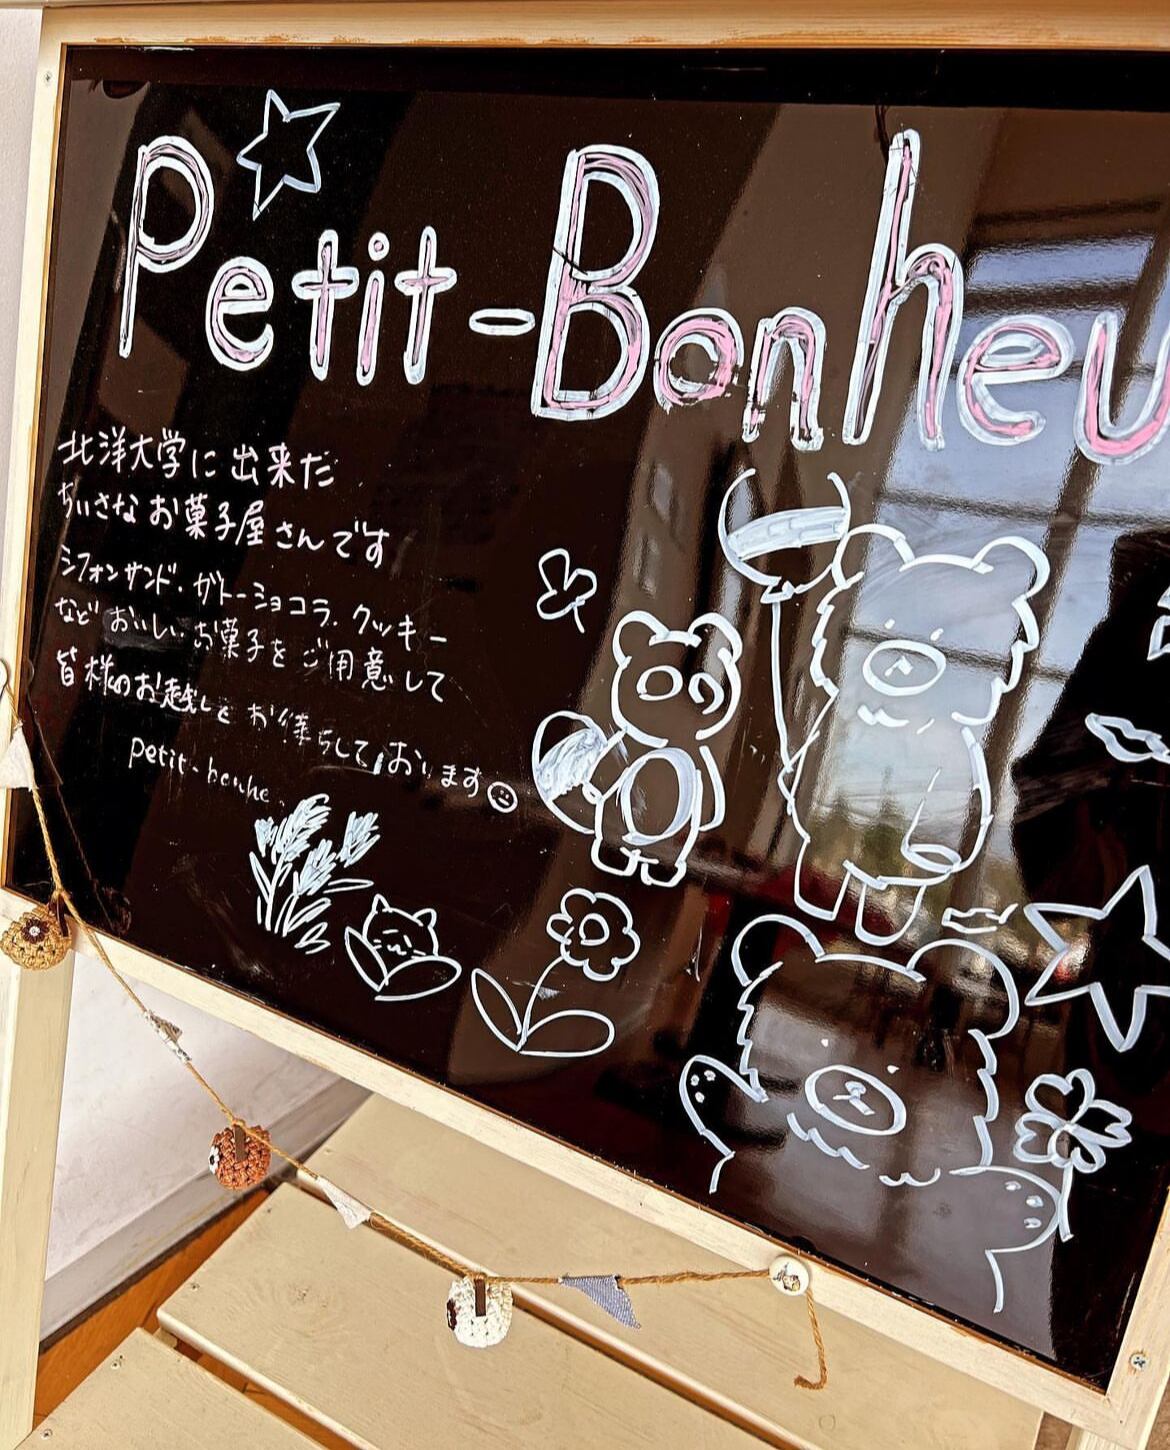 Petit-Bonheu
北洋大学に出来だ
ちいさなお菓子屋さんです
シフォンサンド.ガトーショコラ.クッキー
などおいしいお菓子をご用意して
皆様のお越しをお待ちしております
petit-bonhe